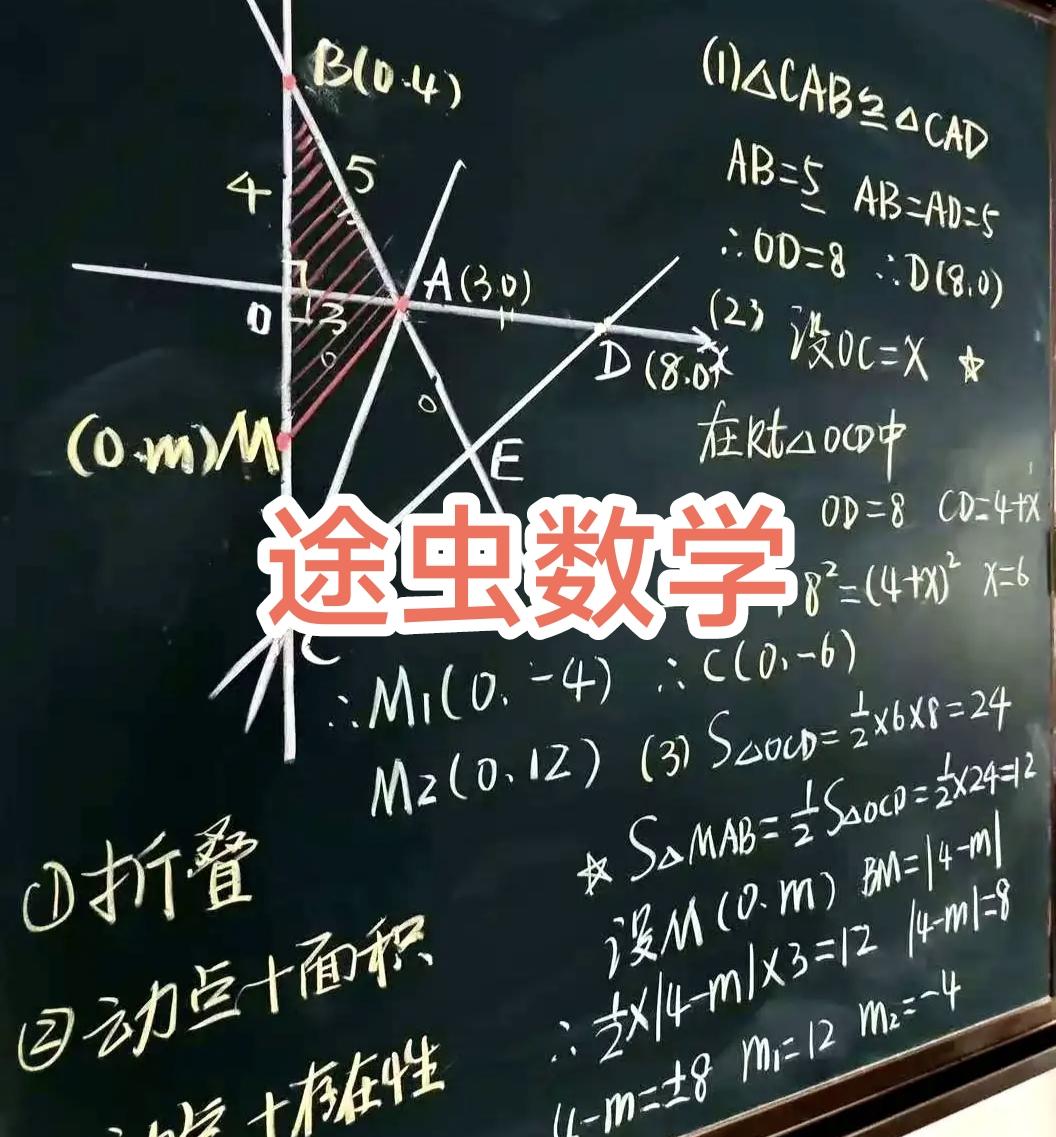 B(0.4)
4
5
A(3.0)
O
3
D(8.0)
x
(0.m)M
E
C
(1)△CAB≌△CAD
AB=5 AB=AD=5
∴OD=8 ∴D(8,0)
(2) 设OC=X ☆
在Rt△OCD中
OD=8 CD=4+X
8²=(4+X)² X=6
∴M1(0,-4) ∴C(0,-6)
M2(0、12) (3) S△OCD=½×6×8=24
☆ S△MAB=½S△OCD=½×24=12
设M(0.m) BM=|4-m|
∴½×|4-m|×3=12 |4-m|=8
4-m=±8 m1=12 m2=-4
①折叠
②动点+面积
+存在性
途虫数学